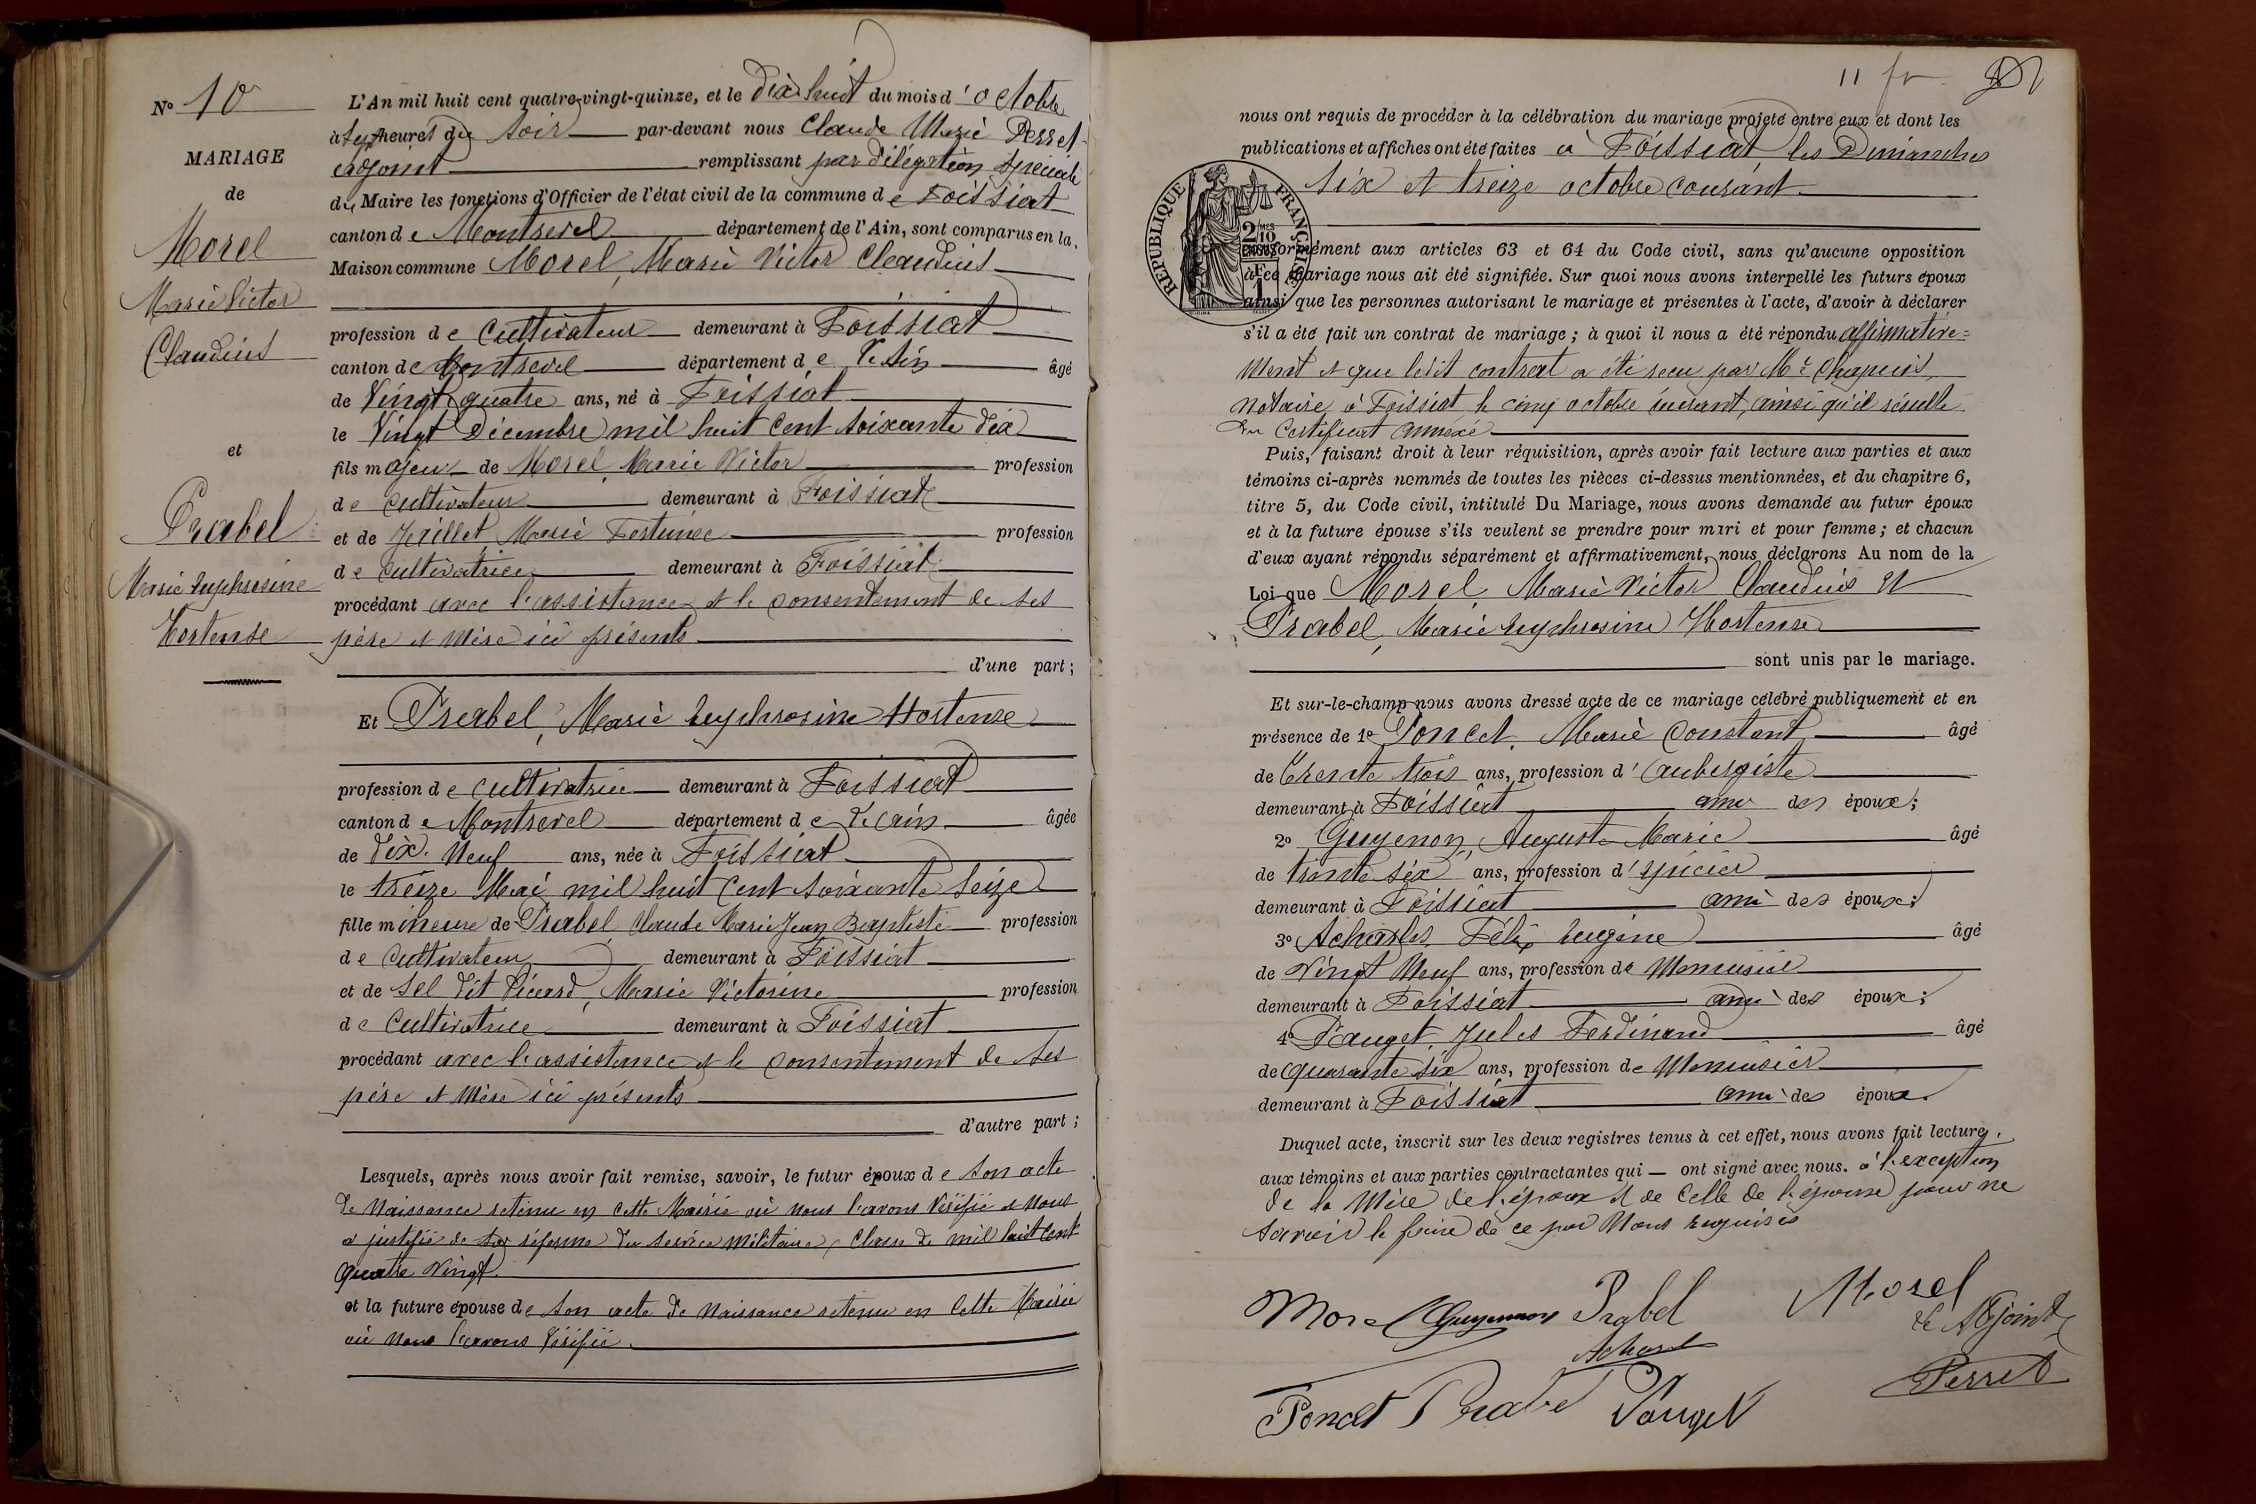 N° 10
MARIAGE
de
Morel
Marie Victor
Claudius
et
Prabel
Marie Euphrosine
Hortense
L'An mil huit cent quatre-vingt-quinze, et le dix huit du mois d'octobre
à sept heures du soir par-devant nous Claude Marie Perret
adjoint remplissant par délégation spéciale
du Maire les fonctions d'Officier de l'état civil de la commune de Foissiat
canton de Montrevel département de l'Ain, sont comparus en la
Maison commune Morel, Marie Victor Claudius
profession de cultivateur demeurant à Foissiat
canton de Montrevel département de l'Ain âgé
de Vingt quatre ans, né à Foissiat
le Vingt Décembre mil huit cent soixante dix
fils majeur de Morel, Marie Victor profession
de cultivateur demeurant à Foissiat
et de Jaillet Marie profession
de cultivatrice demeurant à Foissiat
procédant avec l'assistance et le consentement de ses
père et mère ici présents
d'une part;
Et Prabel, Marie Euphrosine Hortense
profession de cultivatrice demeurant à Foissiat
canton de Montrevel département de l'ain âgée
de dix-neuf ans, née à Foissiat
le treize Mai mil huit cent soixante seize
fille mineure de Prabel Claude Marie Jean Baptiste profession
de cultivateur demeurant à Foissiat
et de Sel dit Picard, Marie Victorine profession
de cultivatrice demeurant à Foissiat
procédant avec l'assistance et le consentement de ses
père et mère ici présents
d'autre part;
Lesquels, après nous avoir fait remise, savoir, le futur époux de son acte
de naissance retenu en cette Mairie où nous l'avons vérifié et nous
a justifié de sa réforme du service militaire, classe de mil huit cent
quatre vingt
et la future épouse de son acte de naissance retenu en cette Mairie
où nous l'avons vérifié.
11
nous ont requis de procéder à la célébration du mariage projeté entre eux et dont les
publications et affiches ont été faites à Foissiat les Dimanches
six et treize octobre courant
RÉPUBLIQUE FRANÇAISE
2/10 EN SUS
1F
conformément aux articles 63 et 64 du Code civil, sans qu'aucune opposition
à ce mariage nous ait été signifiée. Sur quoi nous avons interpellé les futurs époux
ainsi que les personnes autorisant le mariage et présentes à l'acte, d'avoir à déclarer
s'il a été fait un contrat de mariage; à quoi il nous a été répondu affirmative=
ment et que ledit contrat a été reçu par Me Chapuis
notaire à Foissiat le cinq octobre courant, ainsi qu'il résulte
du certificat annexé
Puis, faisant droit à leur réquisition, après avoir fait lecture aux parties et aux
témoins ci-après nommés de toutes les pièces ci-dessus mentionnées, et du chapitre 6,
titre 5, du Code civil, intitulé Du Mariage, nous avons demandé au futur époux
et à la future épouse s'ils veulent se prendre pour mari et pour femme; et chacun
d'eux ayant répondu séparément et affirmativement, nous déclarons Au nom de la
Loi que Morel, Marie Victor Claudius et
Prabel, Marie Euphrosine Hortense
sont unis par le mariage.
Et sur-le-champ nous avons dressé acte de ce mariage célébré publiquement et en
présence de 1° Poncet, Marie Constant âgé
de trente trois ans, profession d'aubergiste
demeurant à Foissiat ami des époux;
2° Guyenon, Auguste Marie âgé
de trente six ans, profession d'épicier
demeurant à Foissiat ami des époux;
3° Acharles, Félix Eugène âgé
de Vingt Neuf ans, profession de Menuisier
demeurant à Foissiat ami des époux;
4° Pauget, Jules Ferdinand âgé
de quarante six ans, profession de Menuisier
demeurant à Foissiat ami des époux.
Duquel acte, inscrit sur les deux registres tenus à cet effet, nous avons fait lecture,
aux témoins et aux parties contractantes qui ont signé avec nous. à l'exception
de la Mère de l'époux et de celle de l'épouse pour ne
savoir le faire de ce par Nous requises
Morel Guyennon Prabel Morel
L'Adjoint
Perret
Poncet Prabel Pauget